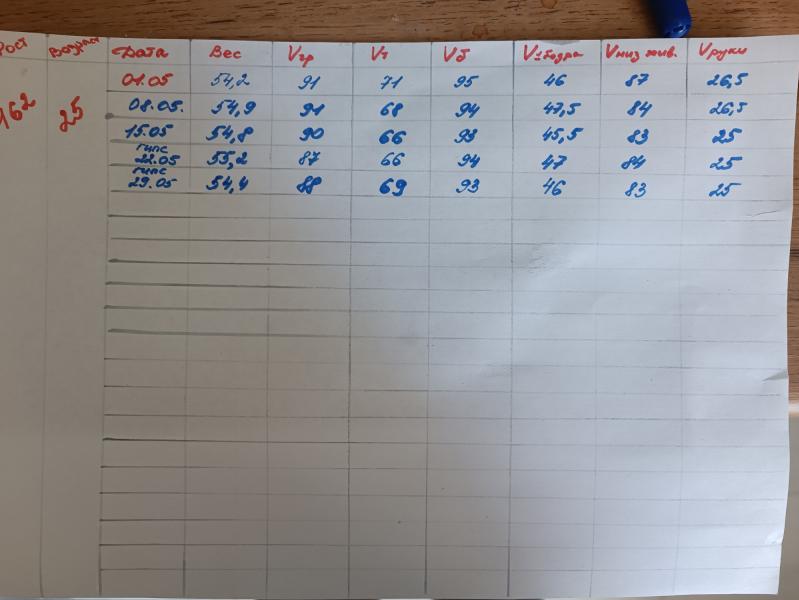 Рост Возраст Дата Вес Vгр Vт Vб V½бедра Vниз жив. Vруки
162 25
01.05 54,2 91 71 95 46 87 26,5
08.05. 54,9 91 68 94 47,5 84 26,5
15.05 54,8 90 66 93 45,5 83 25
гипс
22.05 55,2 87 66 94 47 84 25
гипс
29.05 54,4 88 69 93 46 83 25